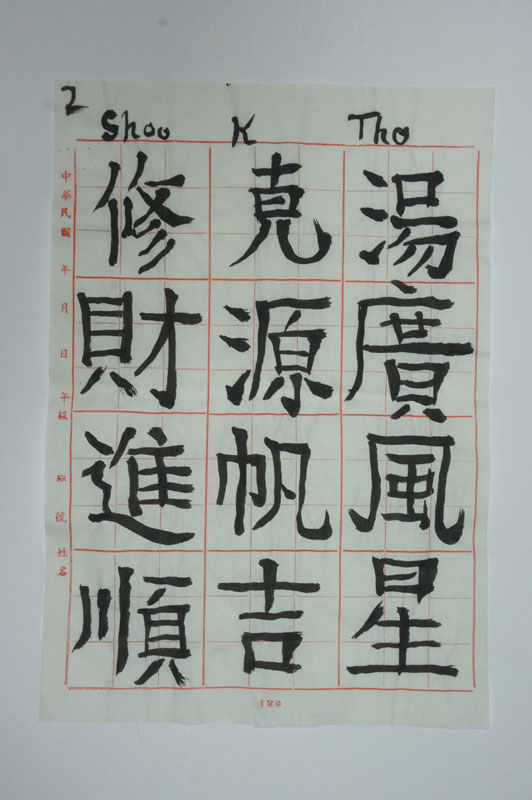 2
Shoo K Tho
修克湯
財源廣
進帆風
順吉星
中華民國 年 月 日 年級 班 號 姓名